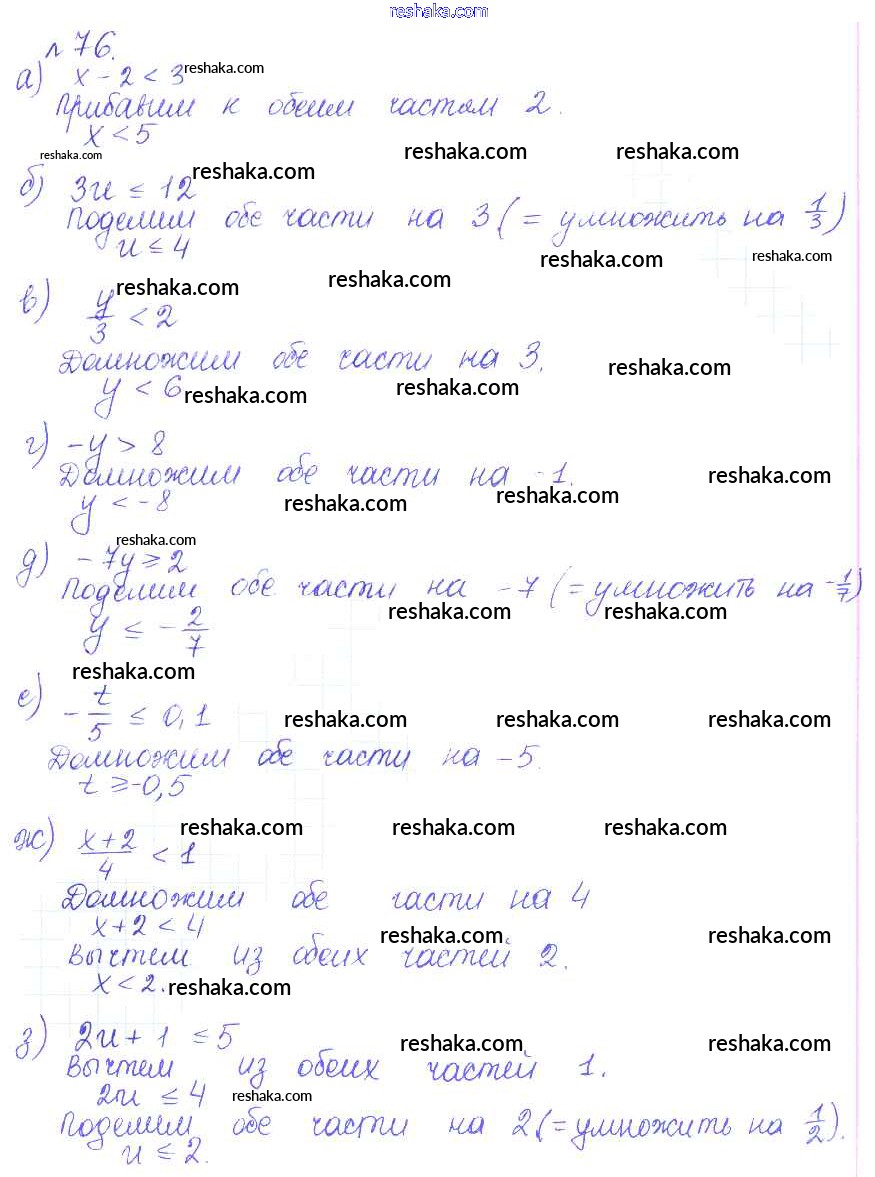 reshaka.com
№ 76.
а) x - 2 < 3 reshaka.com
Прибавим к обеим частям 2.
x < 5
reshaka.com reshaka.com reshaka.com
б) 3u ≤ 12 reshaka.com
Поделим обе части на 3 (= умножить на 1/3)
u ≤ 4 reshaka.com reshaka.com
в) y/3 < 2 reshaka.com reshaka.com
Домножим обе части на 3. reshaka.com
y < 6 reshaka.com reshaka.com
г) -y > 8
Домножим обе части на -1. reshaka.com
y < -8 reshaka.com reshaka.com
reshaka.com
д) -7y ≥ 2
Поделим обе части на -7 (= умножить на -1/7)
y ≤ -2/7 reshaka.com reshaka.com
reshaka.com
е) -t/5 ≤ 0,1 reshaka.com reshaka.com reshaka.com
Домножим обе части на -5.
t ≥ -0,5
reshaka.com reshaka.com reshaka.com
ж) x+2/4 < 1
Домножим обе части на 4
x+2 < 4 reshaka.com reshaka.com
Вычтем из обеих частей 2.
x < 2. reshaka.com
з) 2u + 1 ≤ 5 reshaka.com reshaka.com
Вычтем из обеих частей 1.
2u ≤ 4 reshaka.com
Поделим обе части на 2 (= умножить на 1/2).
u ≤ 2.